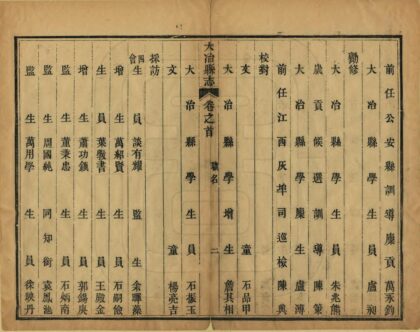 前任公安縣訓導廩貢 萬永鈞
大冶縣學生員 盧昶
勸修
大冶縣學生員 朱兆熊
歲貢候選訓導 陳策
大冶縣學生員 盧溥
前任江西灰埠司巡檢 陳典
校對
文童 石品甲
大冶縣學增生 詹其相
大冶縣志 卷之首 職名 二
大冶縣學生員 石振玉
文童 楊兆吉
採訪
四會
生員 談有耀 監生 余
增生 萬郝賢 生員 石嗣儉
生員 葉教書 生員 王殿金
增生 蕭功鏡 生員 郭錫庚
監生 董秉忠 生員 石炳南
監生 周國純 同知銜 袁鳳池
監生 萬用學 生員 徐映丹